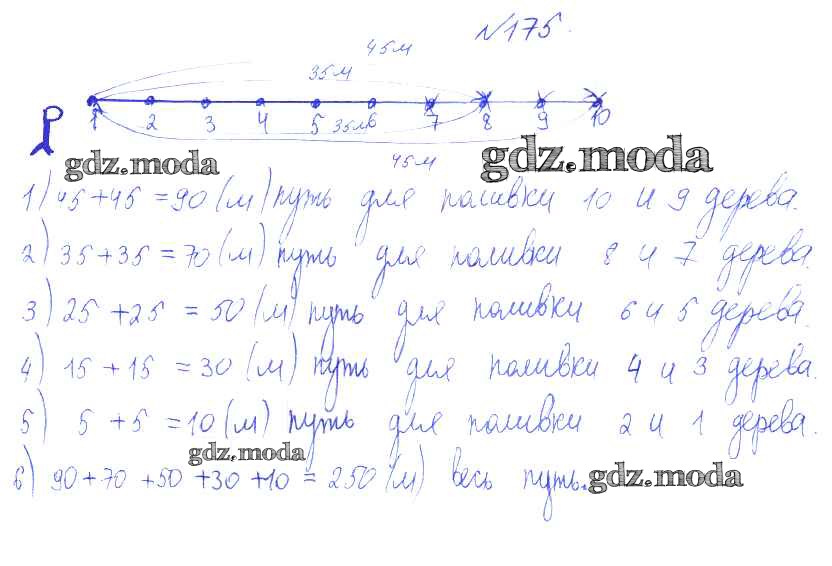 №175.
45м
35м
1 2 3 4 5 6 7 8 9 10
35м
45м
gdz.moda
gdz.moda
1) 45+45 = 90 (м) путь для поливки 10 и 9 дерева.
2) 35+35 = 70 (м) путь для поливки 8 и 7 дерева.
3) 25+25 = 50 (м) путь для поливки 6 и 5 дерева.
4) 15+15 = 30 (м) путь для поливки 4 и 3 дерева.
5) 5+5 = 10 (м) путь для поливки 2 и 1 дерева.
gdz.moda
6) 90+70+50+30+10 = 250 (м) весь путь.
gdz.moda